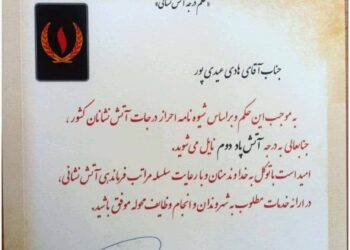 «حکم درجه آتش نشانی»
جناب آقای هادی عیدی پور
به موجب این حکم و براساس شیوه نامه احراز درجات آتش نشانان کشور ،
جنابعالی به درجه آتش پاد دوم نایل می شوید.
امید است با توکل به خداوند منان و با رعایت سلسله مراتب فرماندهی آتش نشانی،
در ارائه خدمات مطلوب به شهروندان و انجام وظایف محوله موفق باشید.